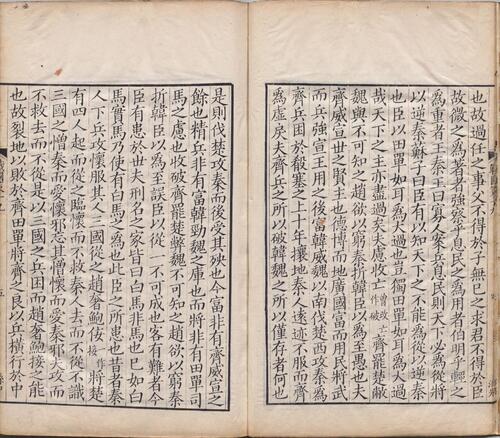 也故過任之事父不得於子無已之求君不得於臣
故微之爲著者強察乎息民之爲用者伯明乎輕之
爲重者王秦王曰寡人案兵息民則天下必爲從將
以逆秦蘇子曰臣有以知天下之不能爲從以逆秦
也臣以田單如耳爲大過也豈獨田單如耳爲大過
哉天下之主亦盡過矣夫慮收亡曾改亡作破齊罷楚敝
魏與不可知之趙欲以窮秦折韓臣以爲至愚也夫
齊威宣世之賢主也德博而地廣國富而用民將武
而兵強宣王用之後富韓威魏以南伐楚西攻秦爲
齊兵困於殽塞之上十年攘地秦人遠迹不服而齊
爲虛戾夫齊兵之所以破韓魏之所以僅存者何也
是則伐楚攻秦而後受其殃也今富非有齊威宣之
餘也精兵非有富韓勁魏之庫也而將非有田單司
馬之慮也收破齊罷楚弊魏不可知之趙欲以窮秦
折韓臣以爲至誤臣以從一不可成也客有難者今
臣有患於世夫刑名之家皆曰白馬非馬也已如白
馬實馬乃使有白馬之爲也此臣之所患也昔者秦
人下兵攻懷服其人三國從之趙奢鮑佞接作將楚
有四人起而從之臨懷而不救秦人去而不從不識
三國之憎秦而愛懷邪忘其憎懷而愛秦邪夫攻而
不救去而不從是以三國之兵困而趙奢鮑接之能
也故裂地以敗於齊田單將齊之良以兵橫行於中
五